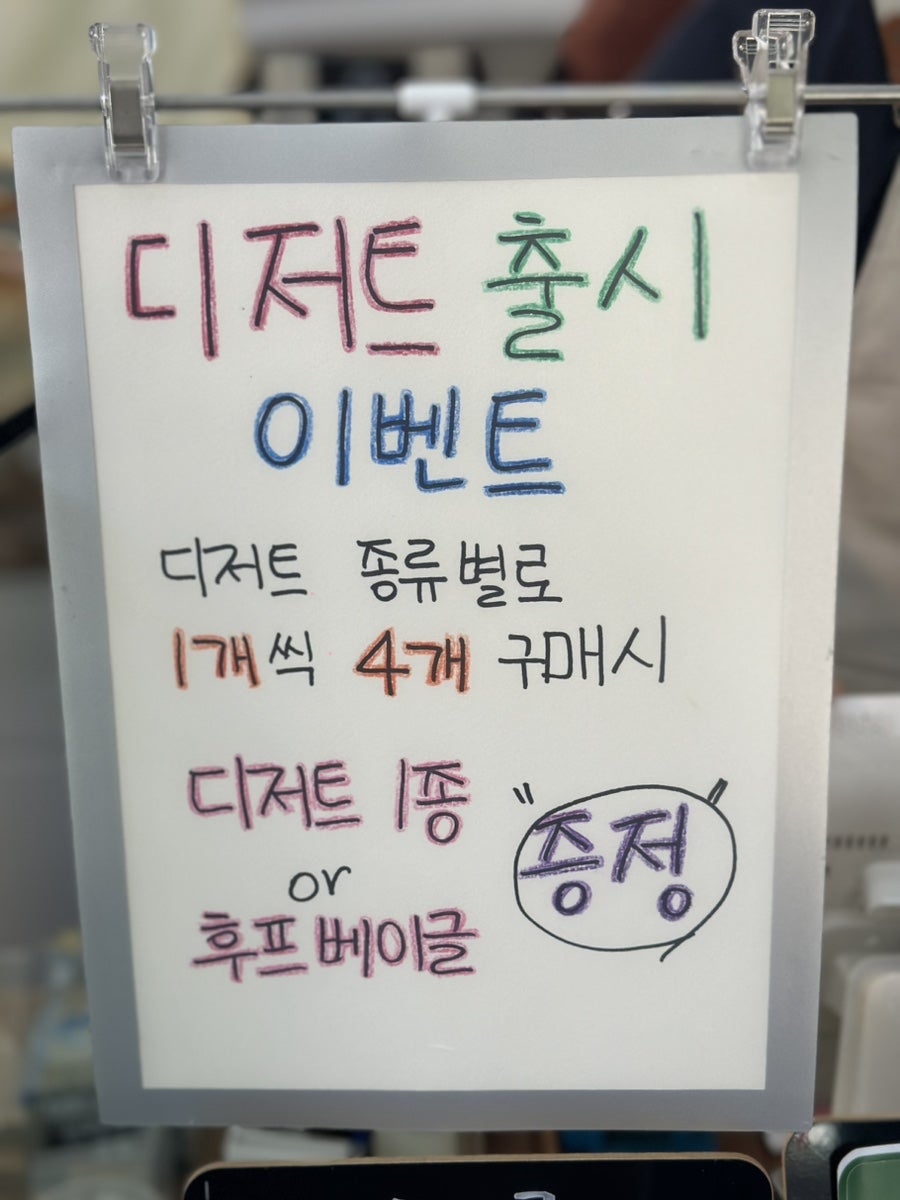 디저트 출시
이벤트
디저트 종류별로
1개씩 4개 구매시
디저트 1종
or
후프베이글
증정